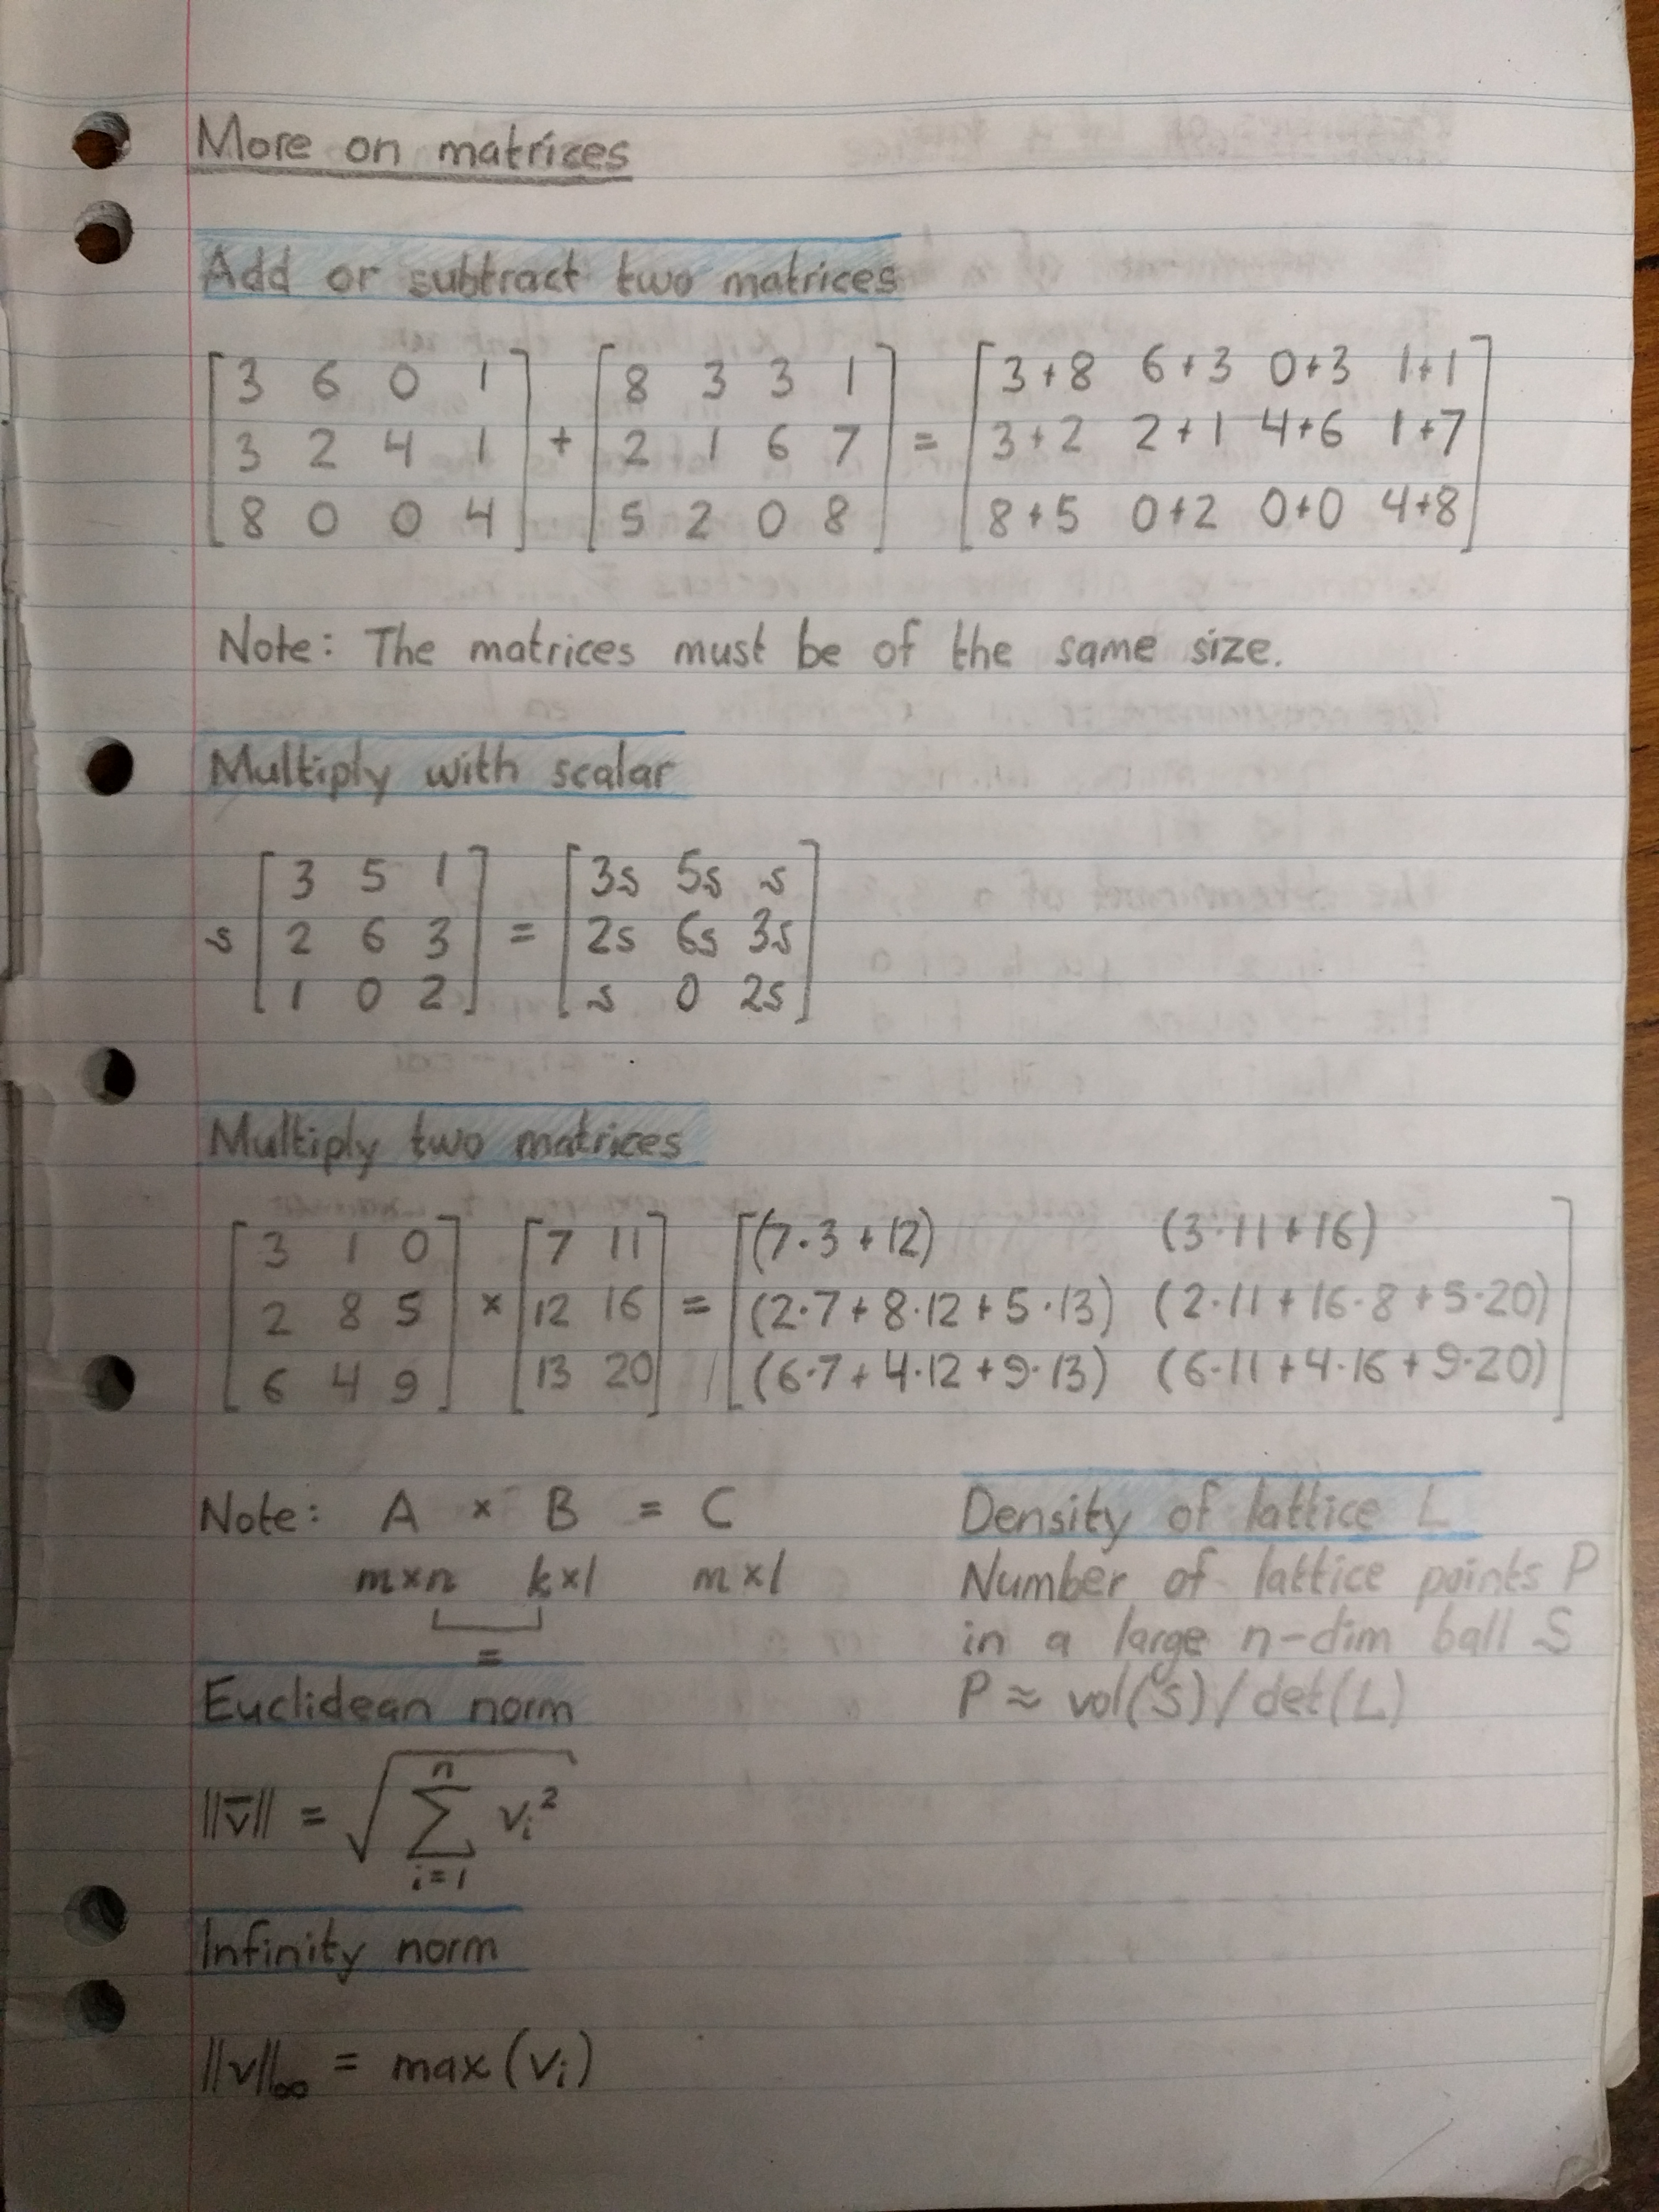 More on matrices
Add or subtract two matrices
[3 6 0 1] [8 3 3 1] [3+8 6+3 0+3 1+1]
[3 2 4 1] + [2 1 6 7] = [3+2 2+1 4+6 1+7]
[8 0 0 4] [5 2 0 8] [8+5 0+2 0+0 4+8]
Note: The matrices must be of the same size.
Multiply with scalar
[3 5 1] [3s 5s s]
s [2 6 3] = [2s 6s 3s]
[1 0 2] [s 0 2s]
Multiply two matrices
[3 1 0] [7 11] [(7·3+12) (3·11+16)]
[2 8 5] × [12 16] = [(2·7+8·12+5·13) (2·11+16·8+5·20)]
[6 4 9] [13 20] [(6·7+4·12+9·13) (6·11+4·16+9·20)]
Note: A × B = C
m×n k×l m×l
=
Density of lattice L
Number of lattice points P
in a large n-dim ball S
P ≈ vol(S)/det(L)
Euclidean norm
||v̄|| = √ n ∑ i=1 vᵢ²
Infinity norm
||v||∞ = max(vᵢ)